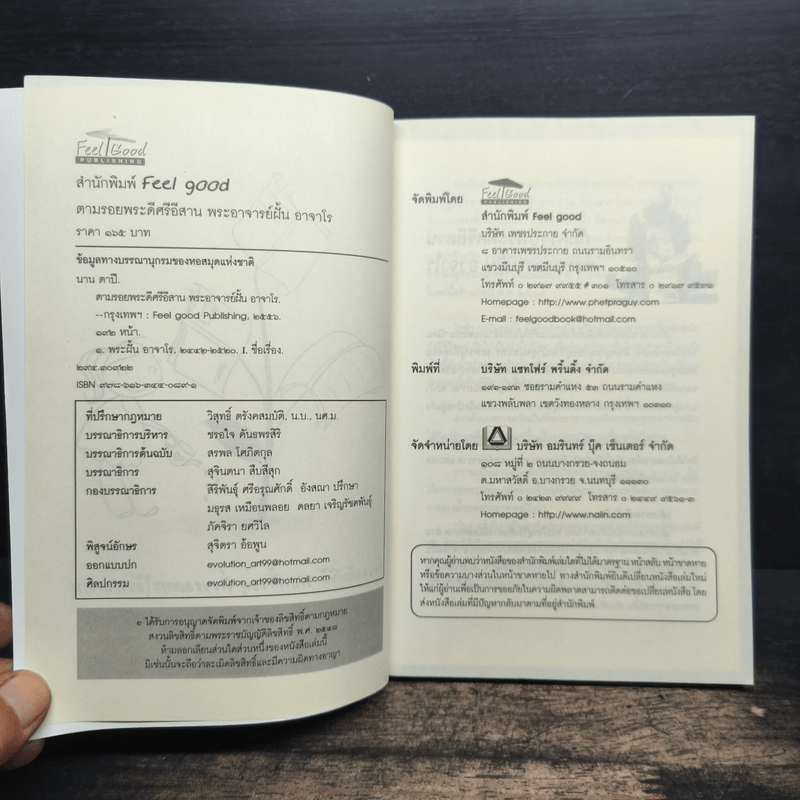 Feel Good
PUBLISHING
สำนักพิมพ์ Feel good
ตามรอยพระดีศรีอีสาน พระอาจารย์ฝั้น อาจาโร
ราคา ๑๖๕ บาท
ข้อมูลทางบรรณานุกรมของหอสมุดแห่งชาติ
นาน ตาปี.
ตามรอยพระดีศรีอีสาน พระอาจารย์ฝั้น อาจาโร.
--กรุงเทพฯ : Feel good Publishing, ๒๕๕๖.
๑๙๒ หน้า.
๑. พระฝั้น อาจาโร, ๒๔๔๒-๒๕๒๐. I. ชื่อเรื่อง.
๒๙๔.๓๐๙๒๒
ISBN ๙๗๘-๖๑๖-๓๔๔-๐๘๙-๑
ที่ปรึกษากฎหมาย วิสุทธิ์ ตรังคสมบัติ, น.บ., นศ.ม.
บรรณาธิการบริหาร ชรอใจ คันธพรสิริ
บรรณาธิการต้นฉบับ สรพล โศภิตกุล
บรรณาธิการ สุจินตนา สืบสีสุก
กองบรรณาธิการ สิริพันธุ์ ศรีอรุณศักดิ์ อังสณา ปรึกษา
มธุรส เหมือนพลอย ดลยา เจริญรัชตพันธุ์
ภัคจิรา ยศวิไล
พิสูจน์อักษร สุจิตรา อ้อพูน
ออกแบบปก evolution_art99@hotmail.com
ศิลปกรรม evolution_art99@hotmail.com
ได้รับการอนุญาตจัดพิมพ์จากเจ้าของลิขสิทธิ์ตามกฎหมาย
สงวนลิขสิทธิ์ตามพระราชบัญญัติลิขสิทธิ์ พ.ศ. ๒๕๔๘
ห้ามลอกเลียนส่วนใดส่วนหนึ่งของหนังสือเล่มนี้
มิเช่นนั้นจะถือว่าละเมิดลิขสิทธิ์และมีความผิดทางอาญา
จัดพิมพ์โดย Feel Good
PUBLISHING
สำนักพิมพ์ Feel good
บริษัท เพชรประกาย จำกัด
๘ อาคารเพชรประกาย ถนนรามอินทรา
แขวงมีนบุรี เขตมีนบุรี กรุงเทพฯ ๑๐๕๑๐
โทรศัพท์ ๐ ๒๙๑๗ ๙๙๕๕ # ๓๐๑ โทรสาร ๐ ๒๙๑๗ ๙๕๗๑
Homepage : http://www.phetpraguy.com
E-mail : feelgoodbook@hotmail.com
พิมพ์ที่ บริษัท แซทโฟร์ พริ้นติ้ง จำกัด
๑๙๑-๑๙๓ ซอยรามคำแหง ๕๓ ถนนรามคำแหง
แขวงพลับพลา เขตวังทองหลาง กรุงเทพฯ ๑๐๓๑๐
จัดจำหน่ายโดย บริษัท อมรินทร์ บุ๊ค เซ็นเตอร์ จำกัด
๑๐๘ หมู่ที่ ๒ ถนนบางกรวย-จงถนอม
ต.มหาสวัสดิ์ อ.บางกรวย จ.นนทบุรี ๑๑๑๓๐
โทรศัพท์ ๐ ๒๔๒๓ ๙๙๙๙ โทรสาร ๐ ๒๔๔๙ ๙๕๖๑-๓
Homepage : http://www.naiin.com
หากคุณผู้อ่านพบว่าหนังสือของสำนักพิมพ์เล่มใดที่ไม่ได้มาตรฐาน หน้าสลับ หน้าขาดหาย
หรือข้อความบางส่วนในหน้าขาดหายไป ทางสำนักพิมพ์ยินดีเปลี่ยนหนังสือเล่มใหม่
ให้แก่ผู้อ่านเพื่อเป็นการขออภัยในความผิดพลาดสามารถติดต่อขอเปลี่ยนหนังสือ โดย
ส่งหนังสือเล่มที่มีปัญหากลับมาตามที่อยู่สำนักพิมพ์